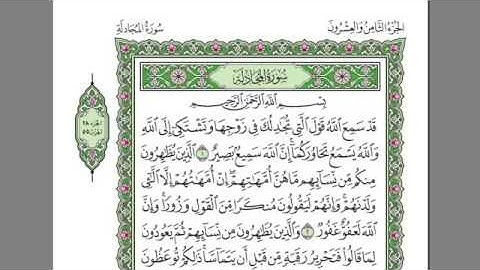 الجزء الثامن والعشرون
سورة المجادلة
سورة المجادلة
بسم الله الرحمن الرحيم
قَدْ سَمِعَ ٱللَّهُ قَوْلَ ٱلَّتِي تُجَٰدِلُكَ فِي زَوْجِهَا وَتَشْتَكِيٓ إِلَى ٱللَّهِ
وَٱللَّهُ يَسْمَعُ تَحَاوُرَكُمَآ إِنَّ ٱللَّهَ سَمِيعٌۢ بَصِيرٌ ١ ٱلَّذِينَ يُظَٰهِرُونَ
مِنكُم مِّن نِّسَآئِهِم مَّا هُنَّ أُمَّهَٰتِهِمْ إِنْ أُمَّهَٰتُهُمْ إِلَّا ٱلَّٰٓـِٔي
وَلَدْنَهُمْ وَإِنَّهُمْ لَيَقُولُونَ مُنكَرًا مِّنَ ٱلْقَوْلِ وَزُورًا وَإِنَّ
ٱللَّهَ لَعَفُوٌّ غَفُورٌ ٢ وَٱلَّذِينَ يُظَٰهِرُونَ مِن نِّسَآئِهِمْ ثُمَّ يَعُودُونَ
لِمَا قَالُوا۟ فَتَحْرِيرُ رَقَبَةٍ مِّن قَبْلِ أَن يَتَمَآسَّا ذَٰلِكُمْ تُوعَظُونَ